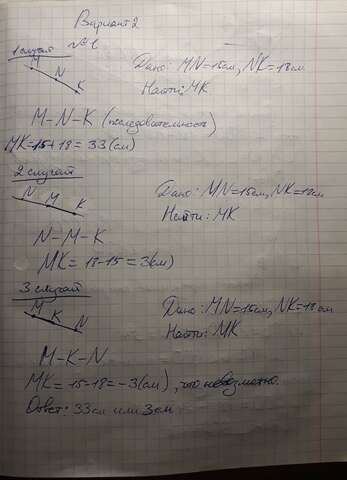 Вариант 2
№1
1 случай
M
N
K
Дано: MN=15см, NK=18см
Найти: MK
M-N-K (последовательность)
MK=15+18=33(см)
2 случай
N
M
K
Дано: MN=15см, NK=18см
Найти: MK
N-M-K
MK=18-15=3(см)
3 случай
M
K
N
Дано: MN=15см, NK=18см
Найти: MK
M-K-N
MK=15-18=-3(см), что невозможно.
Ответ: 33см или 3см